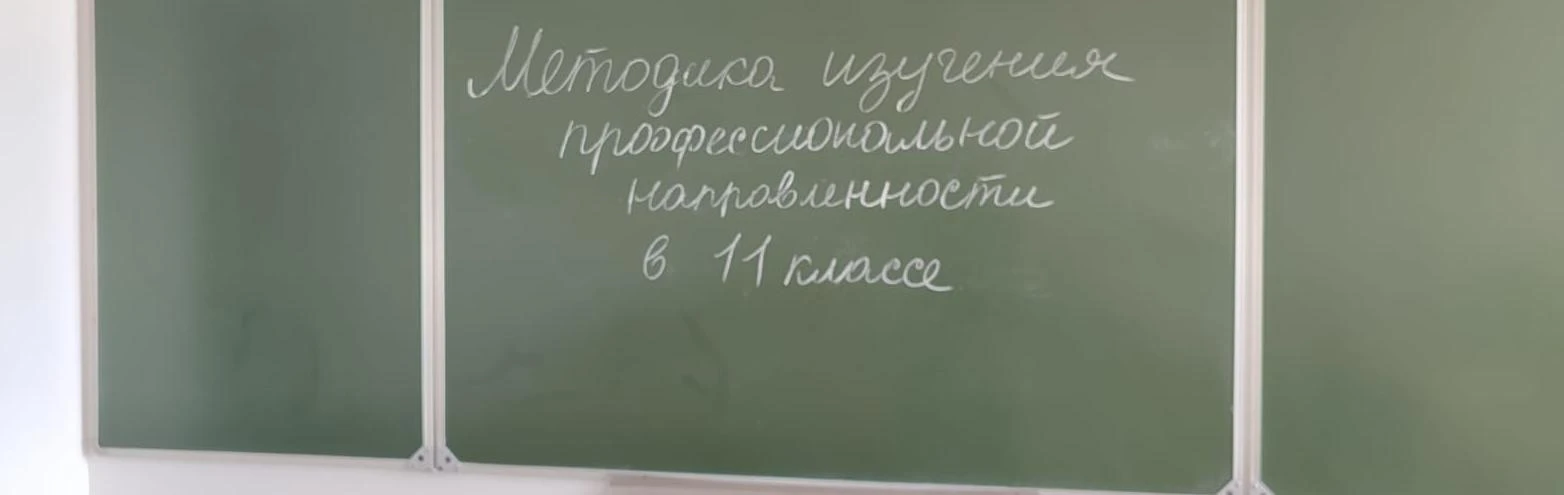 Методика изучения
профессиональной
направленности
в 11 классе